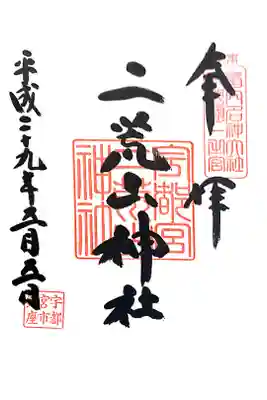 奉拝
二荒山神社
平成二十九年三月五日
宇都宮
二荒山
神社
宇都
宮市
座